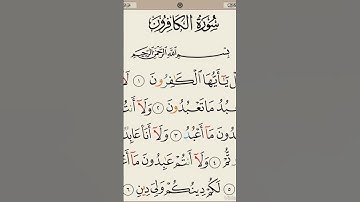 سُورَةُ الكَافِرُونَ
بِسْمِ ٱللَّهِ ٱلرَّحْمَٰنِ ٱلرَّحِيمِ
يَٰٓأَيُّهَا ٱلْكَٰفِرُونَ ١
بُدُ مَا تَعْبُدُونَ ٢ وَلَآ أَنتُ
دُونَ مَآ أَعْبُدُ ٣ وَلَآ أَنَا۠ عَابِدٌ
تُّمْ ٤ وَلَآ أَنتُمْ عَٰبِدُونَ مَآ
٥ لَكُمْ دِينُكُمْ وَلِىَ دِينِ ٦